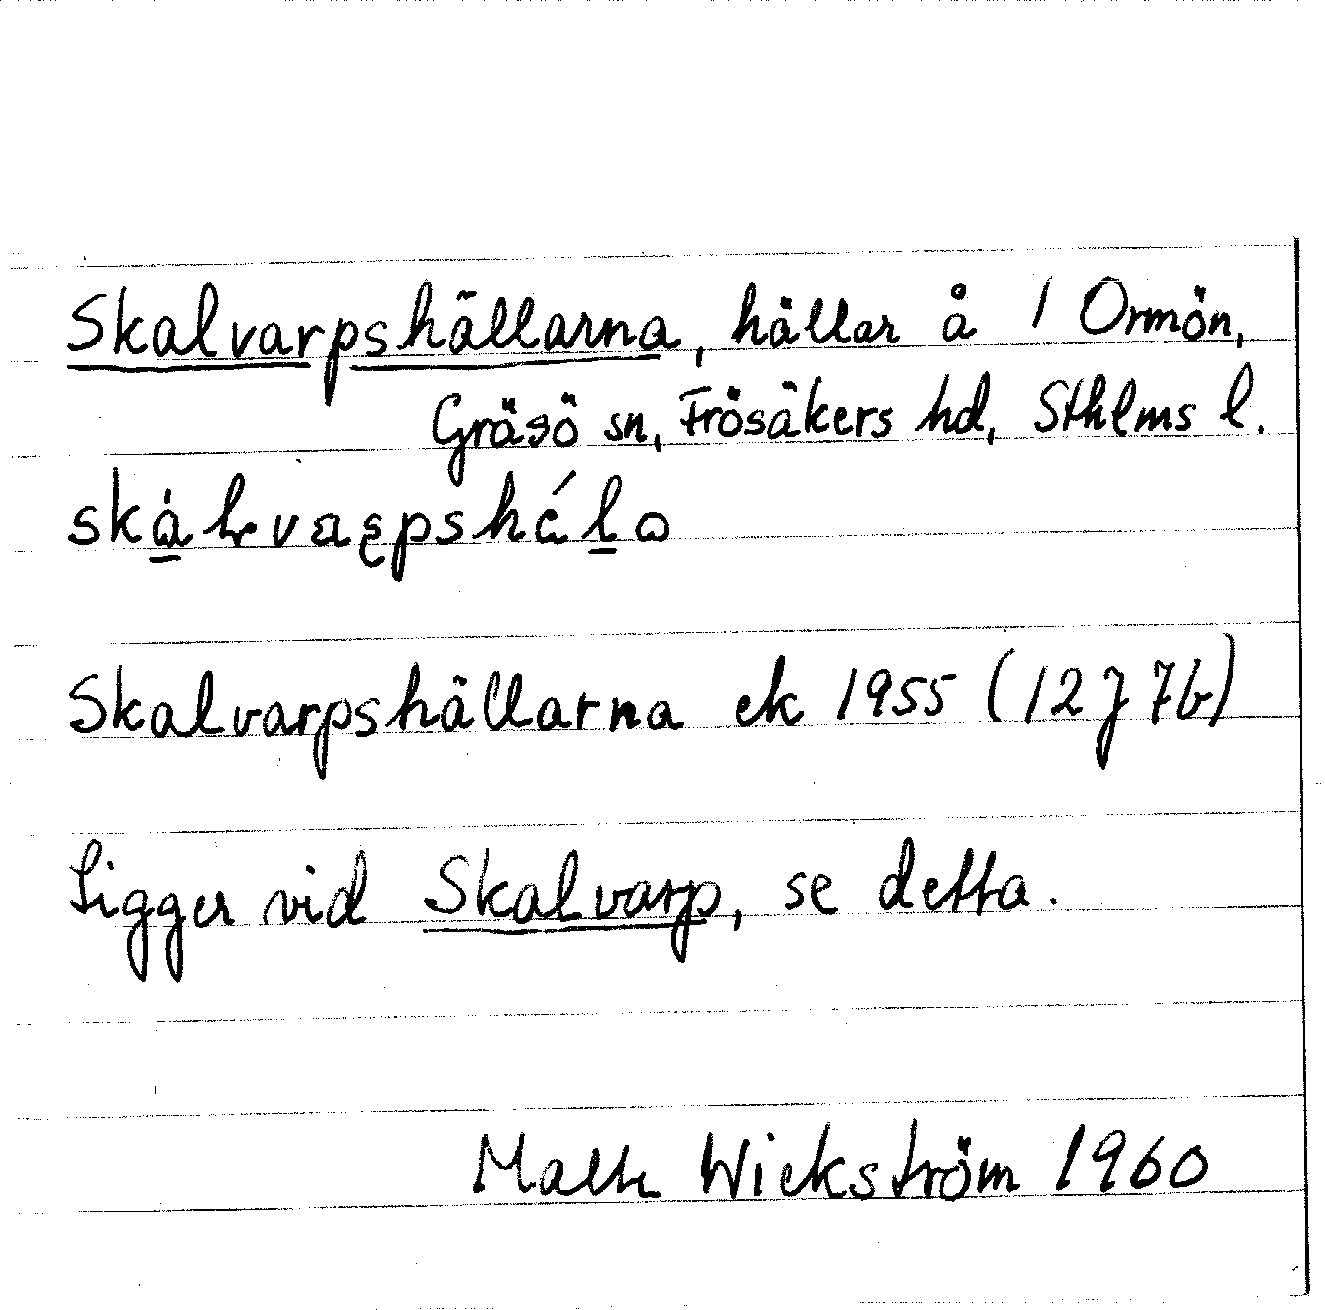 Skalvarpshällarna, hällar å 1 Ormön,
Gräsö sn, Frösåkers hd, Sthlms l.
Skalvarpshällarna ek 1955 (12J 7b)
Ligger vid Skalvarp, se detta.
Wickström 1960